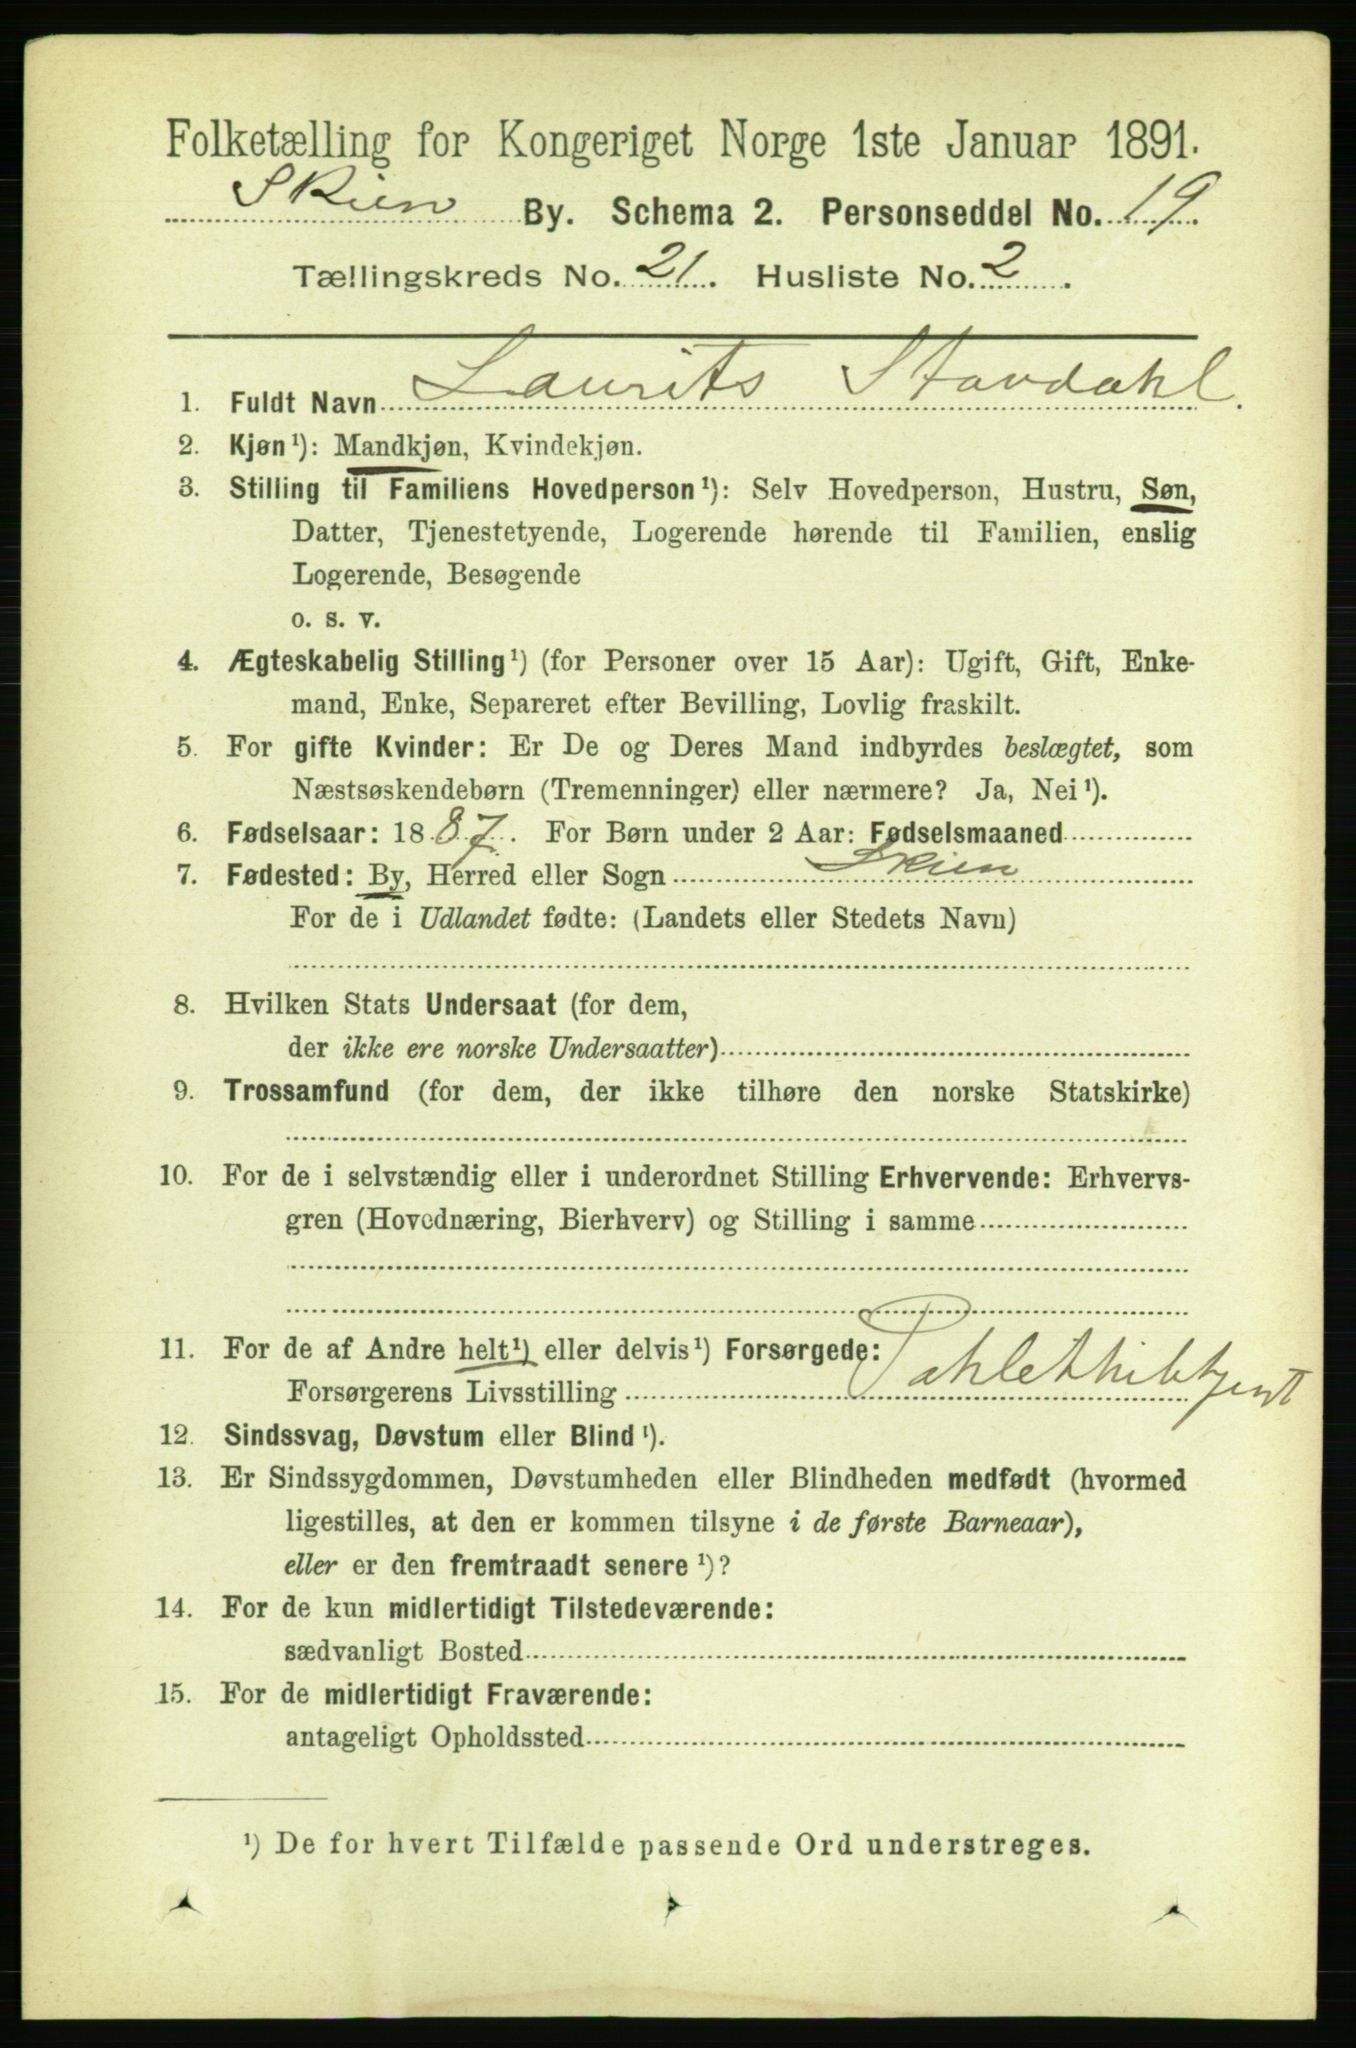 Folketælling for Kongeriget Norge 1ste Januar 1891.
Skien By. Schema 2. Personseddel No. 19.
Tællingskreds No. 21. Husliste No. 2.
1. Fuldt Navn Laurits Stavdahl.
2. Kjøn¹): Mandkjøn, Kvindekjøn.
3. Stilling til Familiens Hovedperson¹): Selv Hovedperson, Hustru, Søn,
Datter, Tjenestetyende, Logerende hørende til Familien, enslig
Logerende, Besøgende
o. s. v.
4. Ægteskabelig Stilling¹) (for Personer over 15 Aar): Ugift, Gift, Enke-
mand, Enke, Separeret efter Bevilling, Lovlig fraskilt.
5. For gifte Kvinder: Er De og Deres Mand indbyrdes beslægtet, som
Næstsøskendebørn (Tremenninger) eller nærmere? Ja, Nei¹).
6. Fødselsaar: 1887. For Børn under 2 Aar: Fødselsmaaned
7. Fødested: By, Herred eller Sogn Skien
For de i Udlandet fødte: (Landets eller Stedets Navn)
8. Hvilken Stats Undersaat (for dem,
der ikke ere norske Undersaatter)
9. Trossamfund (for dem, der ikke tilhøre den norske Statskirke)
10. For de i selvstændig eller i underordnet Stilling Erhvervende: Erhvervs-
gren (Hovednæring, Bierhverv) og Stilling i samme
11. For de af Andre helt¹) eller delvis¹) Forsørgede:
Forsørgerens Livsstilling
12. Sindssvag, Døvstum eller Blind¹).
13. Er Sindssygdommen, Døvstumheden eller Blindheden medfødt (hvormed
ligestilles, at den er kommen tilsyne i de første Barneaar),
eller er den fremtraadt senere¹)?
14. For de kun midlertidigt Tilstedeværende:
sædvanligt Bosted
15. For de midlertidigt Fraværende:
antageligt Opholdssted
¹) De for hvert Tilfælde passende Ord understreges.